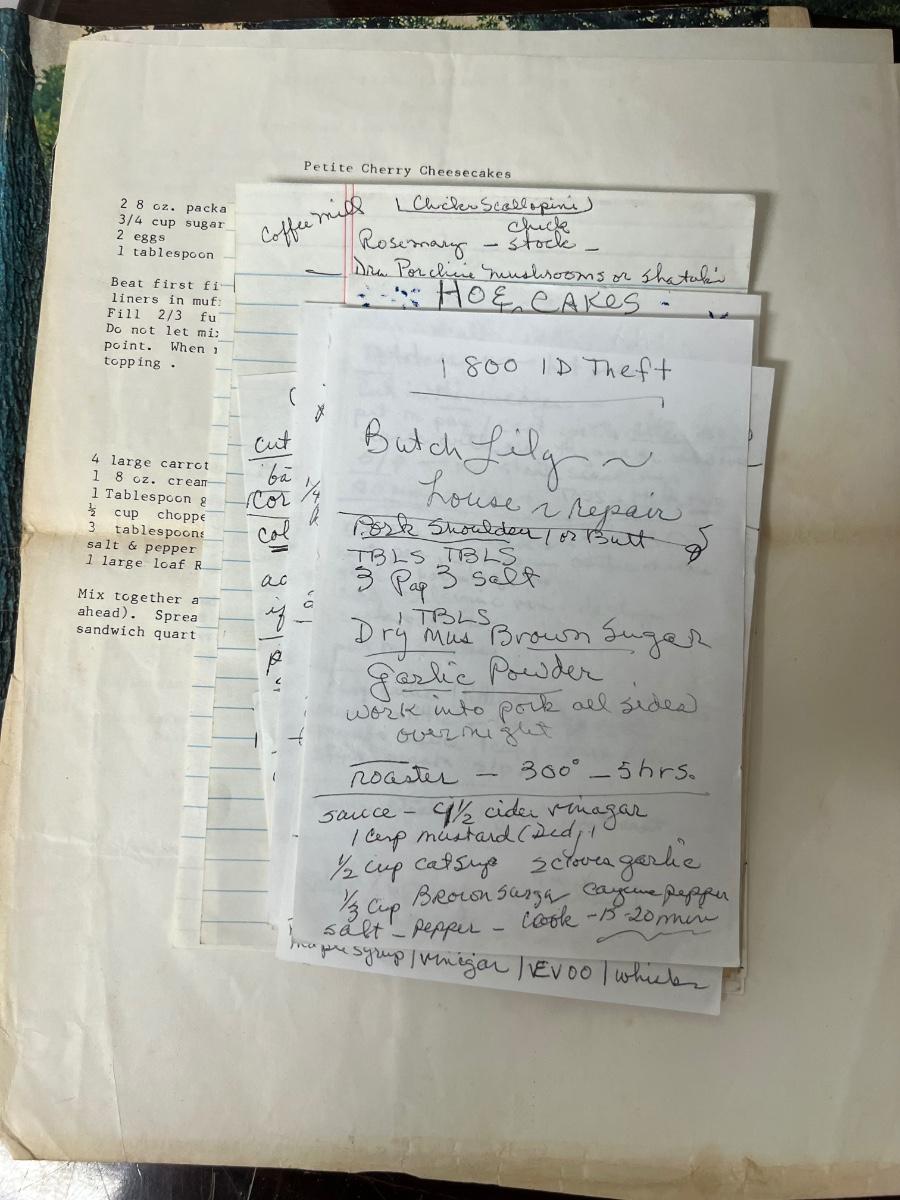 Petite Cherry Cheesecakes
2 8 oz. packa
3/4 cup sugar
2 eggs
1 tablespoon
Beat first fi
liners in muf
Fill 2/3 fu
Do not let mi
point. When
topping .
4 large carrot
1 8 oz. cream
1 Tablespoon g
½ cup choppe
3 tablespoons
salt & pepper
1 large loaf R
Mix together a
ahead). Sprea
sandwich quart
coffee mill
(Chicken Scallopini)
chick
Rosemary - stock -
- Dru Porchine mushrooms or shataki
HOE CAKES
cut
ba
cor
col
ac
if
p
1/4
1 800 ID Theft
Butch Lily ~
house ~ repair
Pork Shoulder / or Butt 5
TBLS TBLS
3 Pap 3 salt
1 TBLS
Dry Mus Brown Sugar
Garlic Powder
work into pork all sides
overnight
roaster - 300° - 5 hrs.
sauce - 1½ cider vinagar
1 cup mustard
½ cup catsup 2 cloves garlic
⅓ cup Brown Surga cayenne pepper
salt - pepper - cook - 15-20 min
maple syrup / vinegar / EVOO / whisk